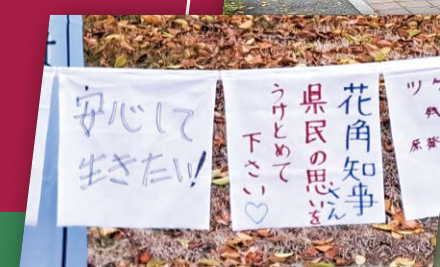 安心して
生きたい!
花角知事さん
県民の思いを
うけとめて
下さい♡
ツ
残
原発